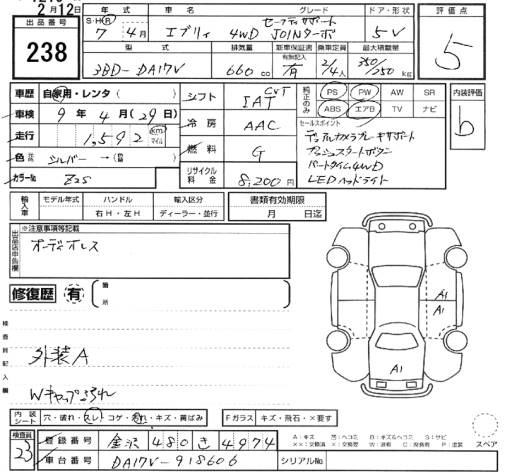 2月12日
出品番号
238
年式 車名 グレード ドア・形状
S・H・R 7年 4月 エブリィ セーフティサポート 4WD JOINターボ 5V
型式 排気量 新車保証書 乗車定員 最大積載量
有無記入
3BD-DA17V 660cc 有 2/4人 350/250kg
評価点
5
車歴 自家用・レンタ( )
車検 9年 4月(29日)
走行 1,592 km マイル
色 シルバー →( )
カラーNo. Z2S
シフト CVT IAT
冷房 AAC
燃料 G
リサイクル料金 8,200円
純正のみ
PS PW AW SR
ABS エアB TV ナビ
セールスポイント
デュアルカメラブレーキサポート
プッシュスタートボタン
パートタイム4WD
LEDヘッドライト
内装評価
b
輸入車 モデル年式 ハンドル 輸入区分
右H・左H ディーラー・並行
書類有効期限
月 日迄
出品店申告欄
※注意事項等記載
オーディオレス
修復歴 有 箇所
検査員記入欄
外装A
Wキャップ
A1
A1
A1
A1
内装シート 穴・破れ・スレ・コゲ・汚れ・キズ・黄ばみ
Fガラス キズ・飛石・×要す
スペア
検査員
23
登録番号 金沢 480 き 4974
車台番号 DA17V-918606
シリアルNo.